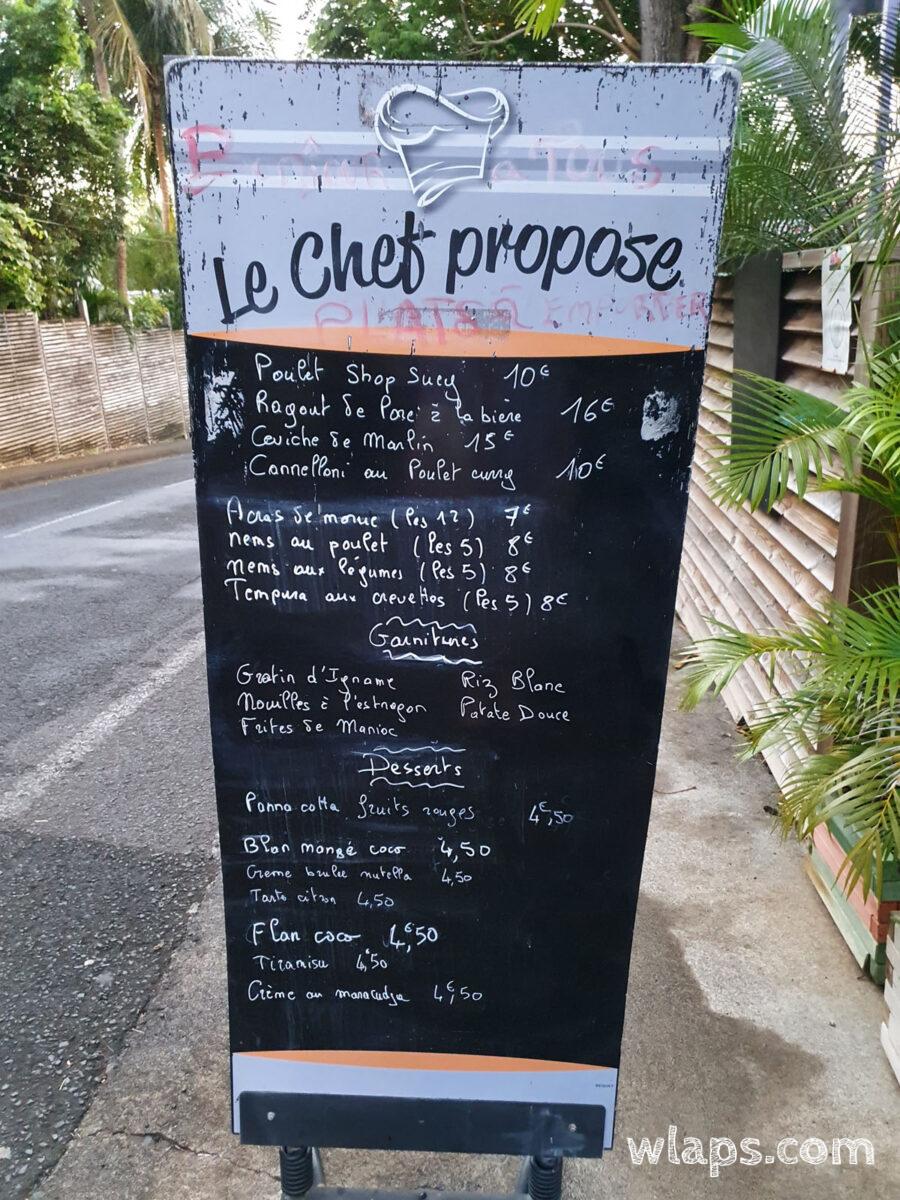 à Tous
Le Chef propose
PLATS À EMPORTER
Poulet Shop Suey 10€
Ragout de Porc à la bière 16€
Ceviche de Marlin 15€
Cannelloni au Poulet curry 10€
Acras de morue (les 12) 7€
nems au poulet (les 5) 8€
nems aux légumes (les 5) 8€
Tempura aux crevettes (les 5) 8€
Garnitures
Gratin d'Igname Riz Blanc
Nouilles à l'estragon Patate Douce
Frites de Manioc
Desserts
Panna cotta fruits rouges 4€,50
Blan mangé coco 4,50
Creme brulee nutella 4,50
Tarte citron 4,50
Flan coco 4€,50
Tiramisu 4€,50
Crème au maracudja 4€,50
wlaps.com